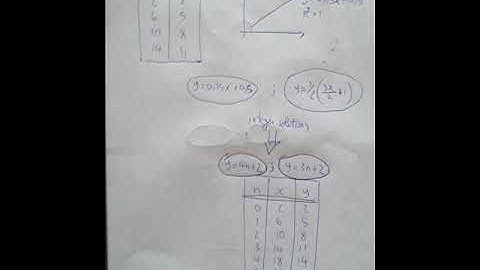 6 5
10 8
14 11
R²=1
y=0.75x+0.5 ; y=½(3x/2+1)
integer solutions
y=4n+2 ; y=3n+2
n x y
0 2 2
1 6 5
2 10 8
3 14 11
4 18 14